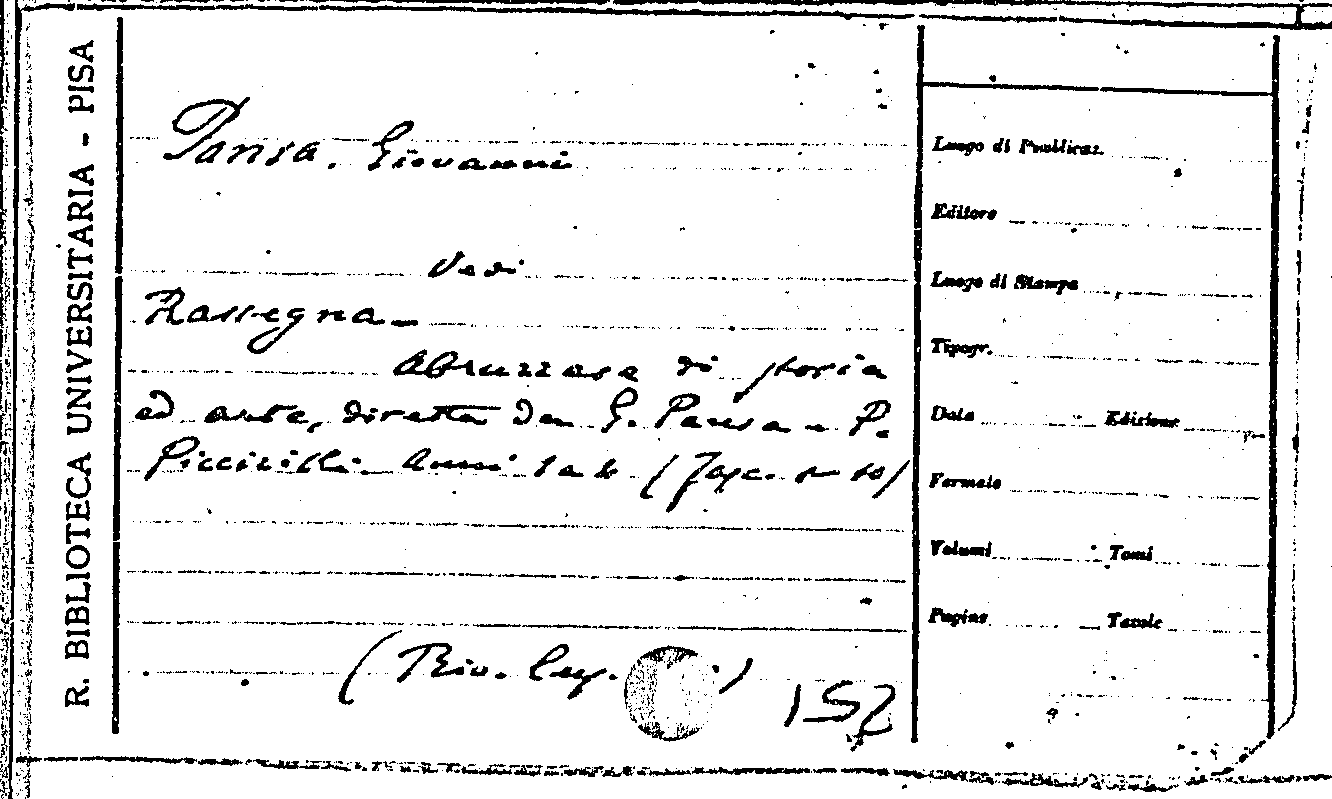 R. BIBLIOTECA UNIVERSITARIA - PISA
Pansa, Giovanni
Vedi
Rassegna
abruzzese di storia
ed arte, diretta da G. Pansa e P.
Piccirilli. Anni 1 a 4 (Fasc.
(Riv.
152
Luogo di Pubblicaz.
Editore
Luogo di Stampa
Tipogr.
Data Edizione
Formato
Volumi Tomi
Pagine Tavole